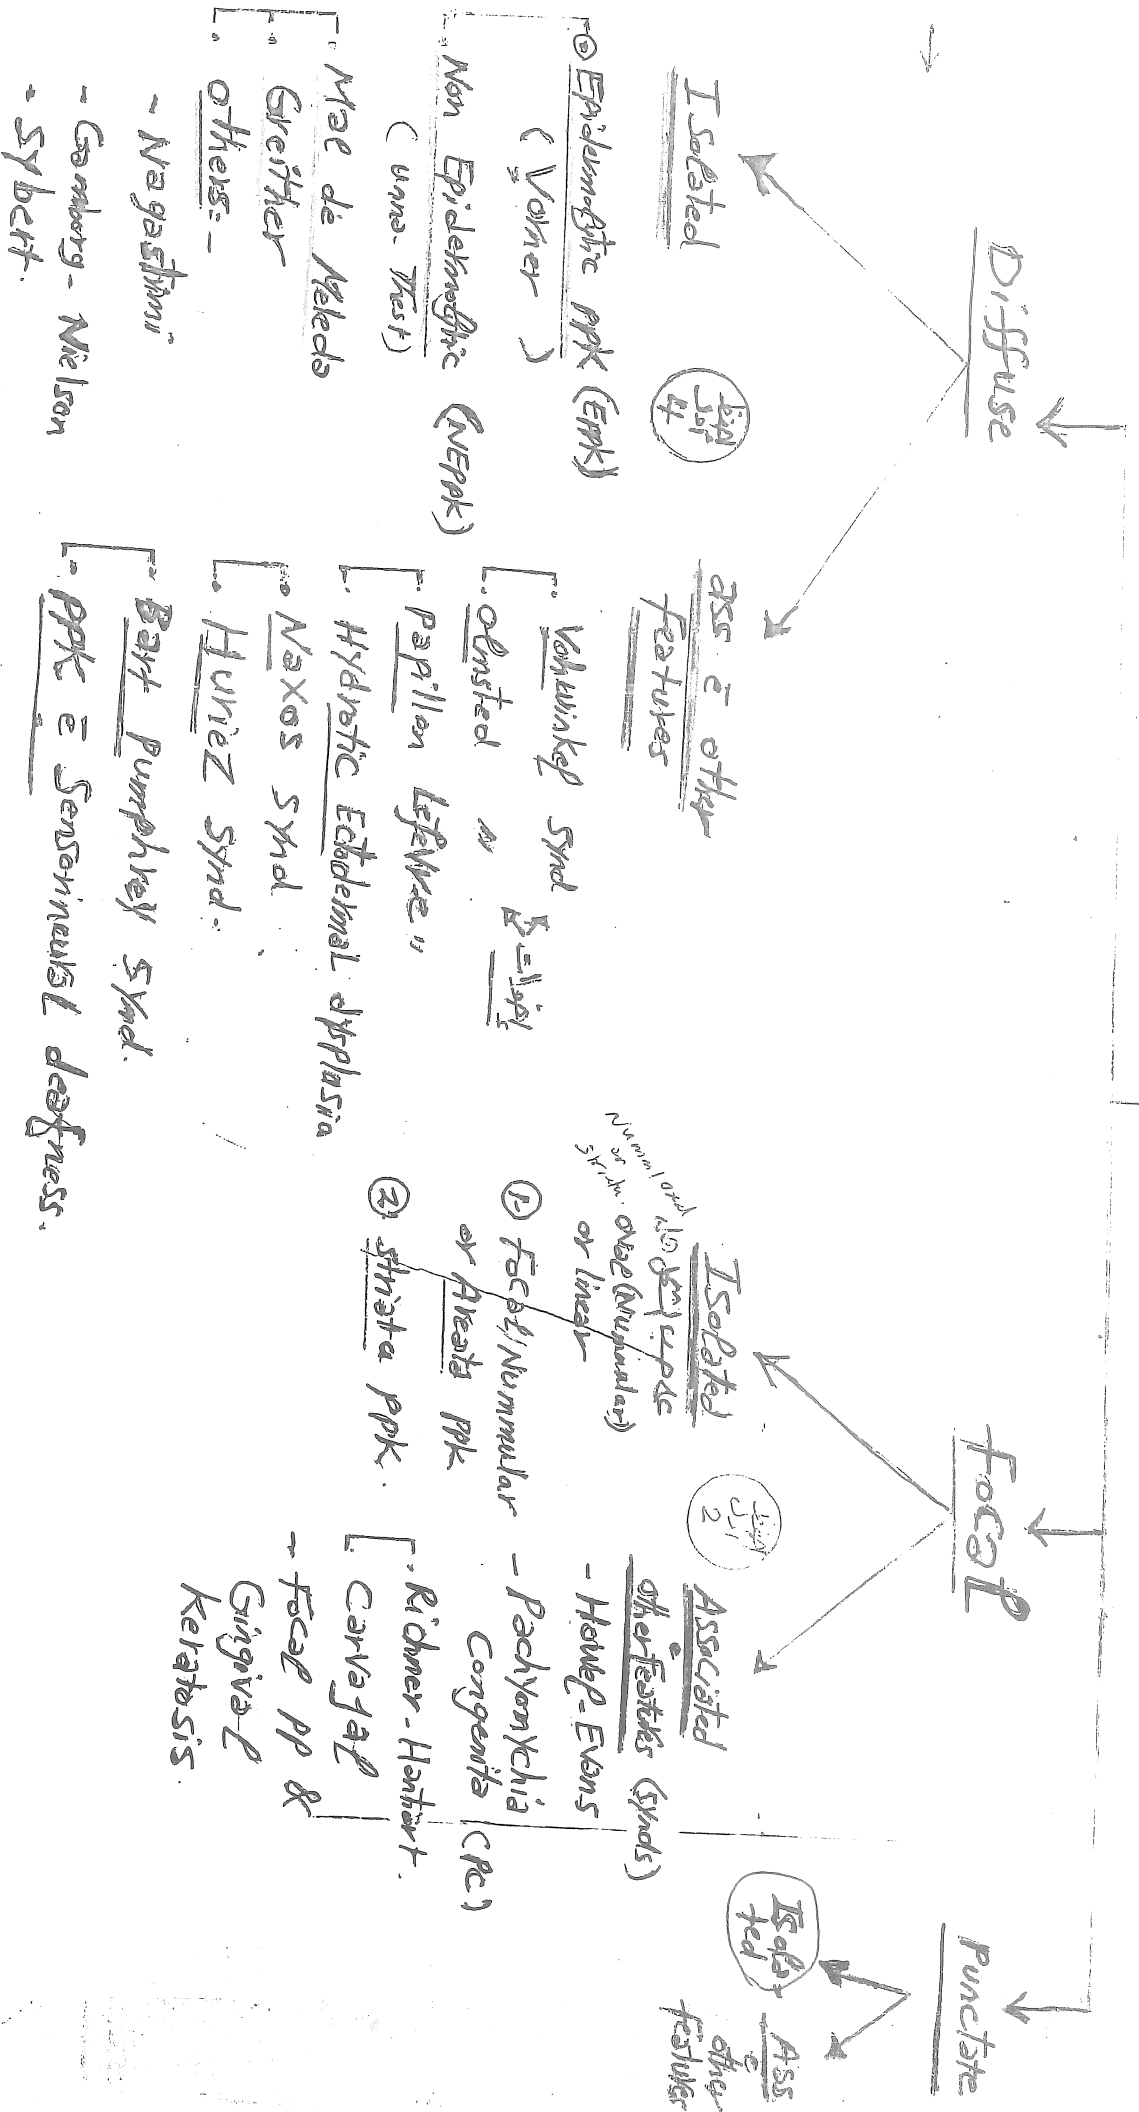 Diffuse
Isolated
① Epidermolytic PPK (EPPK)
(Vörner)
• Non Epidermolytic (NEPPK)
(unna-Thost)
• Mal de Meleda
• Greither
• others:-
- Nagashimi
- Gamborg-Nielson
- Sybert.
4
ass c̄ other
features
• Vohwinkel Synd
• Olmsted "
• Papillon Lefevre "
• Hydrotic Ectodermal dysplasia
• Naxos Synd
• Huriez Synd.
• Bart Pumphrey Synd.
• PPK c̄ Sensorineural deafness.
Focal
Isolated
oval (Numular)
or linear
① Focal/Nummular
or Areata PPK
② Striata PPK.
2
Associated
c̄
other features (synds)
- Howel-Evans
- Pachyonychia
Congenita (PC)
• Richner-Hanhart.
Carvajal
- Focal PP &
Gingival
Keratosis.
Punctate
Isola-
ted
Ass
c̄
other
features